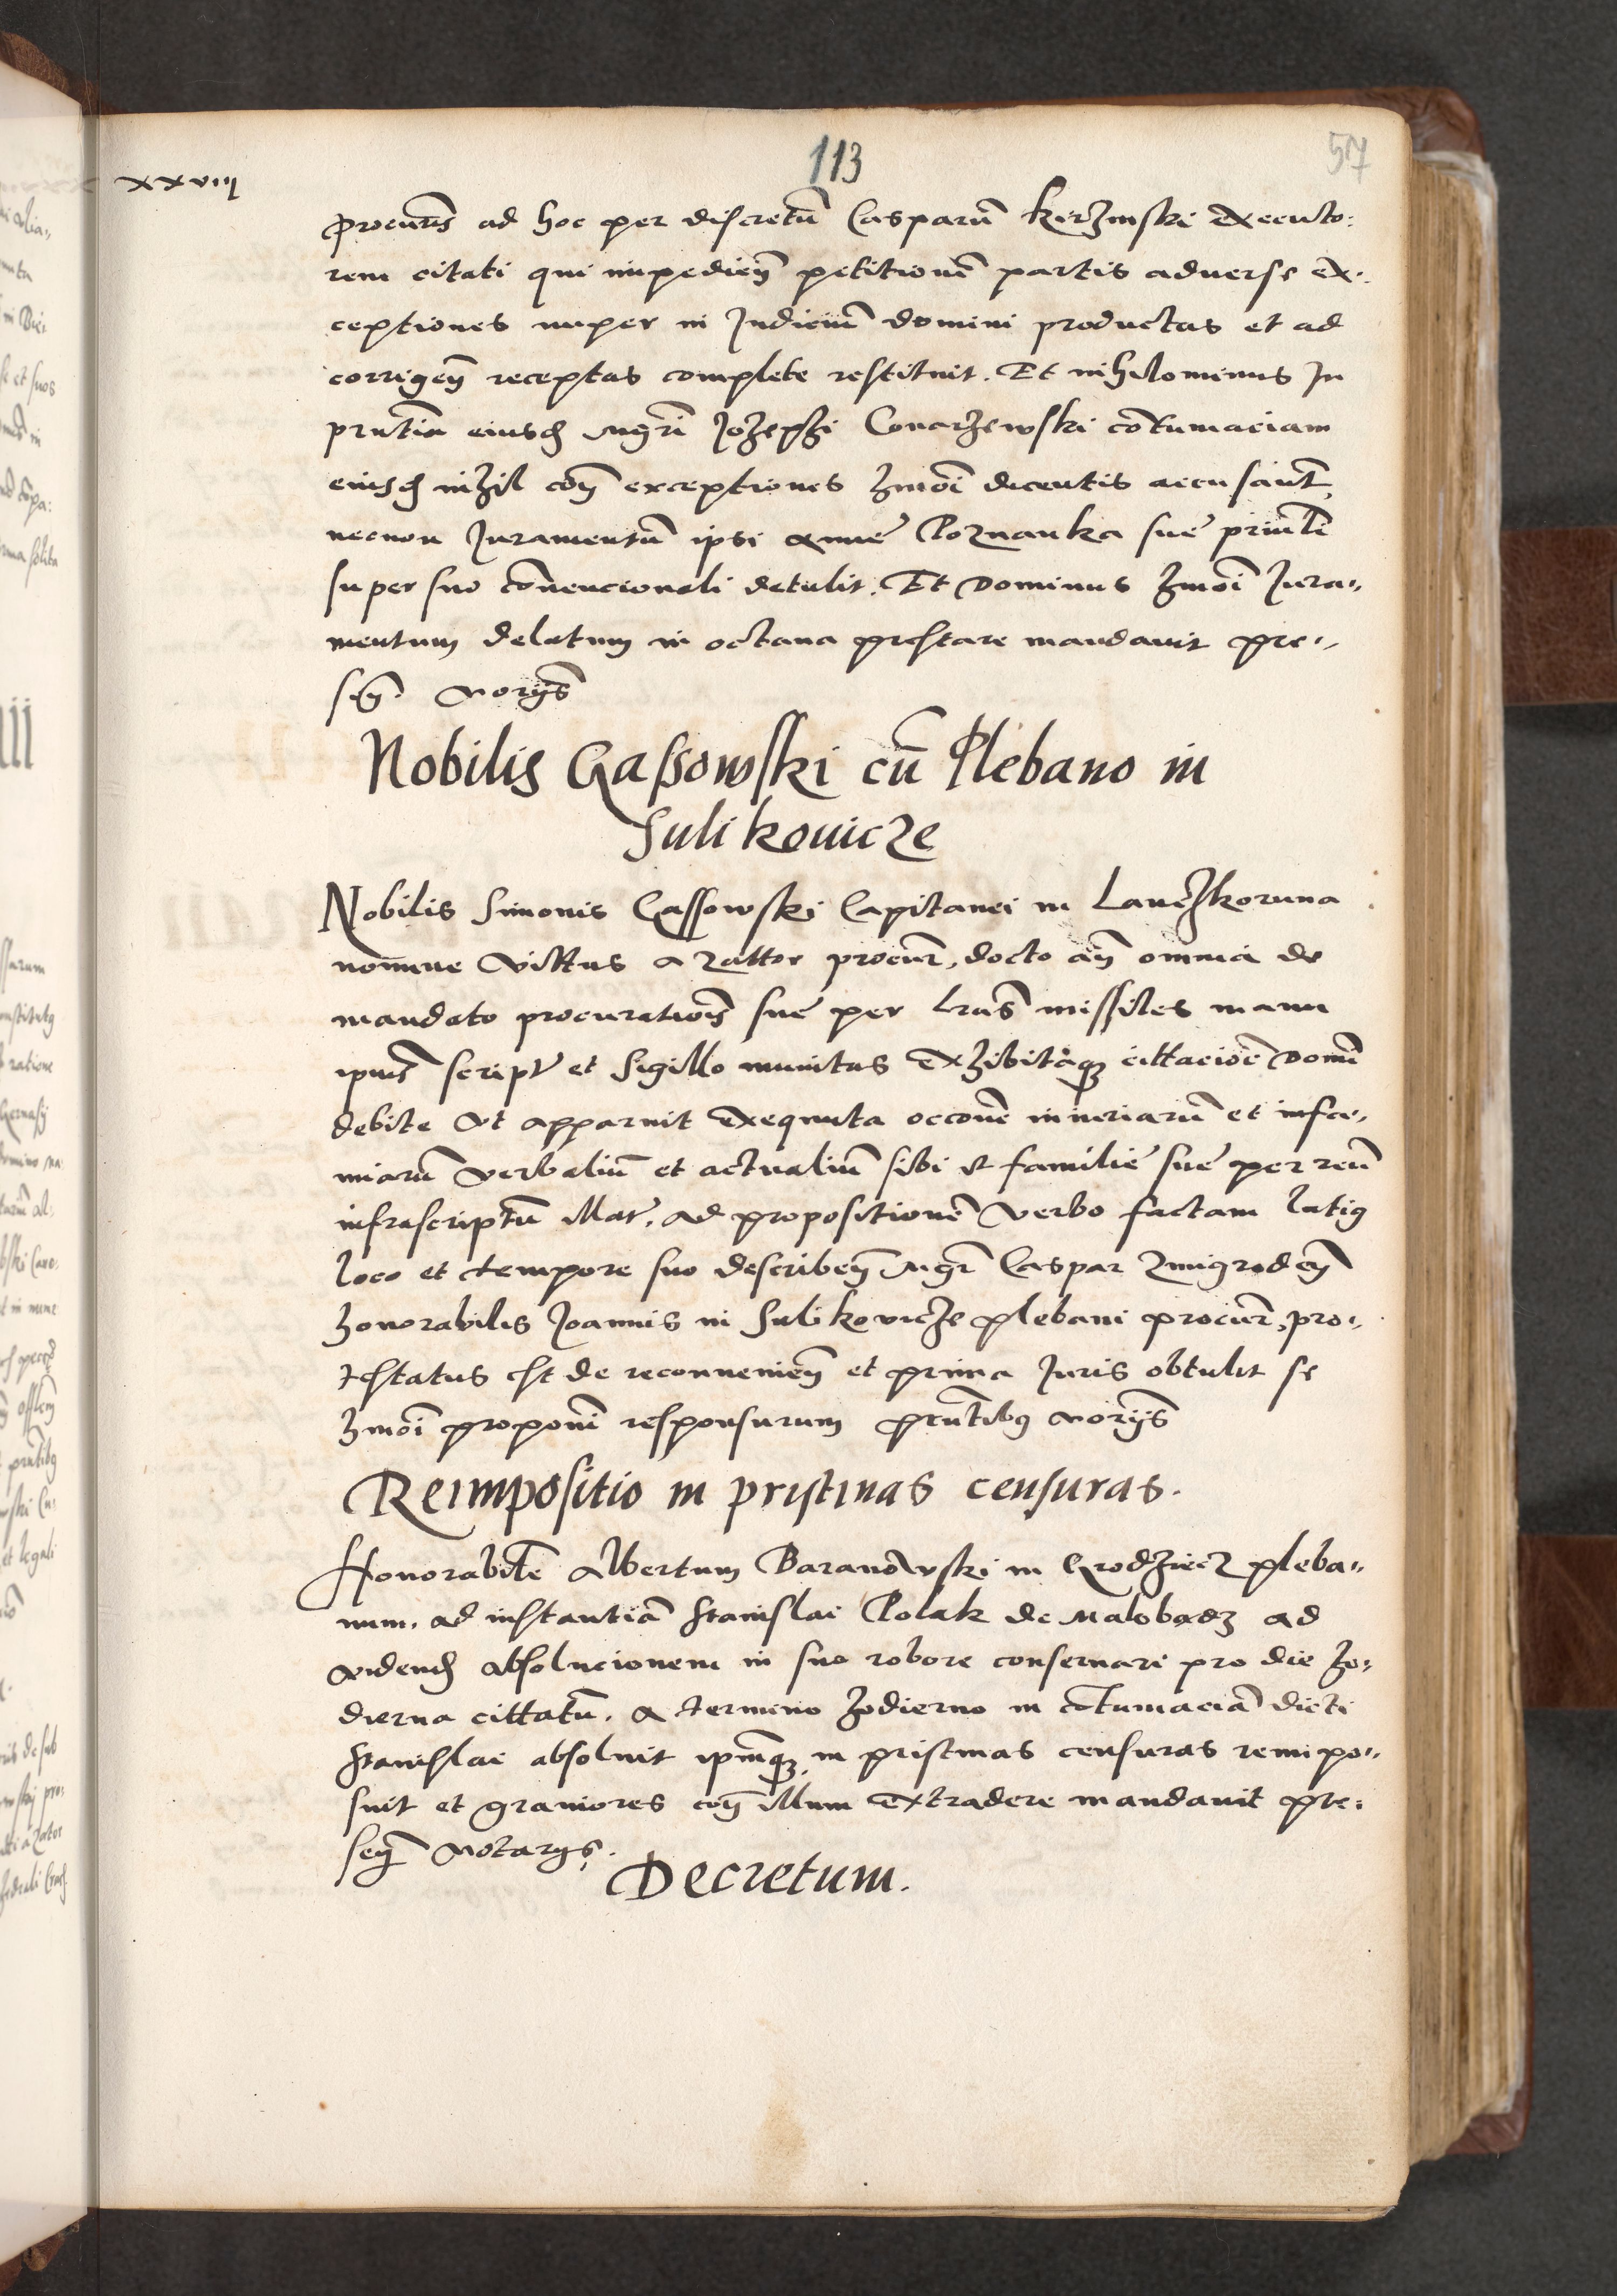 113
57
xxviij
procurñs ad hoc per discretũ Casparũ Kirzinski executo:
rem citati qui impedieñ petitionẽ partis adverse ex:
ceptiones nuper in Judiciũ domini productas et ad
corrigeñ receptas complete restituit. Et nihilominus in
pñtia eiusd mgri Jozephi Conarzewski cõtumaciam
eiusd nihil coñ exceptiones hmõi dicentis accusaũt
necnon Juramentũ ipsi Anne Poznanka sue prinli
super suo cõvencionali detulit. Et Dominus hmõi Jura-
mentum delatum in octava prestare mandavit pre-
señ norijs
Nobilis Gassowski cũ Plebano in
Sulikovicze
Nobilis Simonis Gassowski Capitanei in Lanczkoruna
nomine Vittus a Zattor procur, docto añ omnia de
mandato procurationis sue per lras missiles manu
ipius script et Sigillo munitas exhibitaqz cittacioẽ Domi
debite ut apparuit exequuta occõne iniuriarũ et infa-
miarũ verbaliũ et actualiũ sibi et familie sue per reũ
infrascriptũ illat, ad propositionẽ verbo factam latig
loco et tempore suo describeñ Mgr Caspar Zmigrodeñ
honorabilis Joannis in Sulikovicze plebani procur, pro-
testatus est de reconvenieñ et prima Juris obtulit se
hmõi proponi responsurum pñtibus norijs
Reimpositio in pristinas censuras.
Honorabilẽ Albertum Baranowski in Grodziecz pleba-
num, ad instantiã Stanislai Polak de Malobadz ad
videnď absolucionem in suo robore conservari pro die ho-
dierna cittatũ, a termino hodierno in cõtumaciã dicti
Stanislai absoluit ipmqz in pristinas censuras reimpo-
suit et graviores coñ illum extradere mandavit pre-
señ Notarijs.
Decretum.